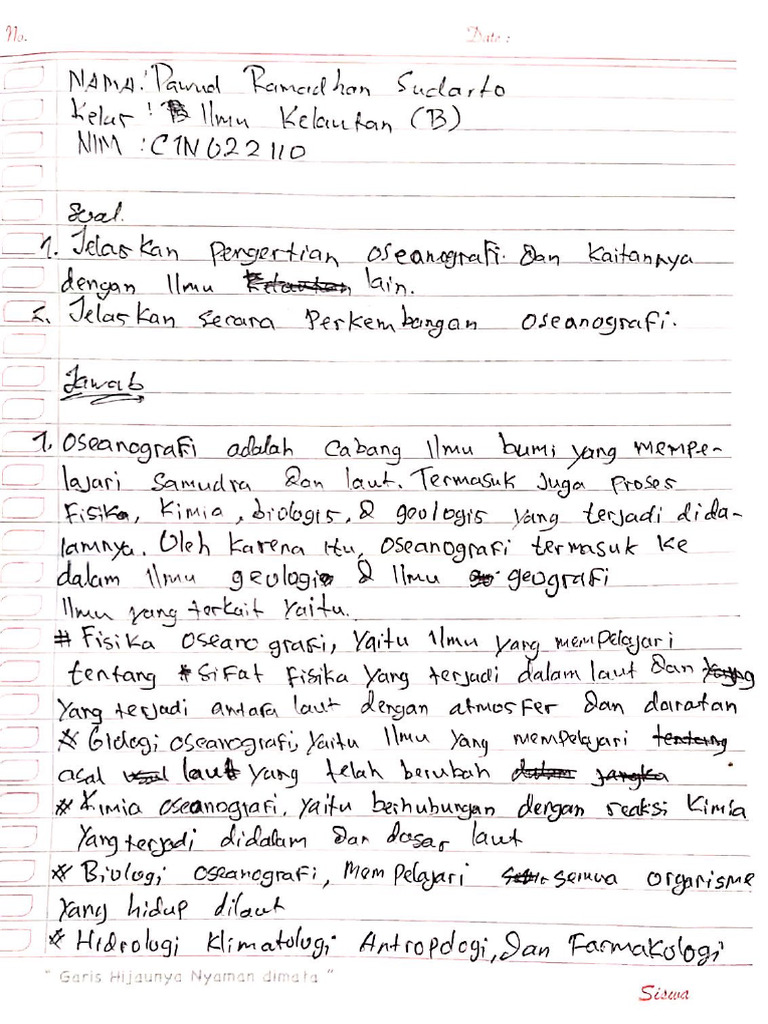 No. Date :
NAMA : Dawud Ramadhan Sudarto
Kelas : Ilmu Kelautan (B)
NIM : C1N022110
Soal.
1. Jelaskan pengertian oseanografi. dan kaitannya
dengan Ilmu Kelautan lain.
2. Jelaskan secara perkembangan oseanografi.
Jawab
1. Oseanografi adalah cabang Ilmu bumi yang mempe-
lajari samudra dan laut. Termasuk juga proses
Fisika, Kimia, biologis, & geologis yang terjadi dida-
lamnya. Oleh karena itu, oseanografi termasuk ke
dalam Ilmu geologi & Ilmu geografi
Ilmu yang terkait yaitu.
# Fisika oseanografi, yaitu Ilmu yang mempelajari
tentang sifat fisika yang terjadi dalam laut dan yang
yang terjadi antara laut dengan atmosfer dan daratan
* Glologi oseanografi, yaitu Ilmu yang mempelajari tentang
asal usal laut yang telah berubah dalam jangka
* Kimia oseanografi, yaitu berhubungan dengan reaksi kimia
yang terjadi didalam dan dasar laut
* Biologi oseanografi, Mempelajari semua organisme
yang hidup dilaut
* Hidrologi Klimatologi Antropologi, dan Farmakologi
" Garis Hijaunya Nyaman dimata "
Siswa